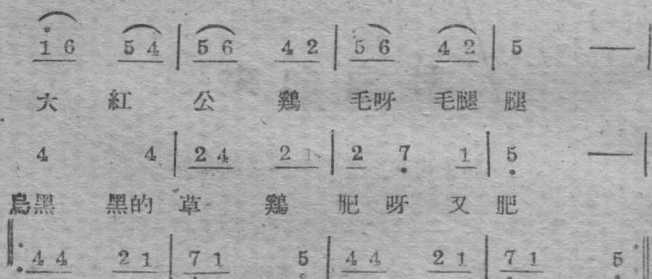 1̇ 6 5 4 | 5 6 4 2 | 5 6 4 2 | 5 — |
大 紅 公 鷄 毛呀 毛腿 腿
4 4 | 2 4 2 1 | 2 7̣ 1 | 5̣ — |
烏黑 黑的 草 鷄 肥 呀 又 肥
‖: 4 4 2 1 | 7̣ 1 5̣ | 4 4 2 1 | 7̣ 1 5̣ :‖